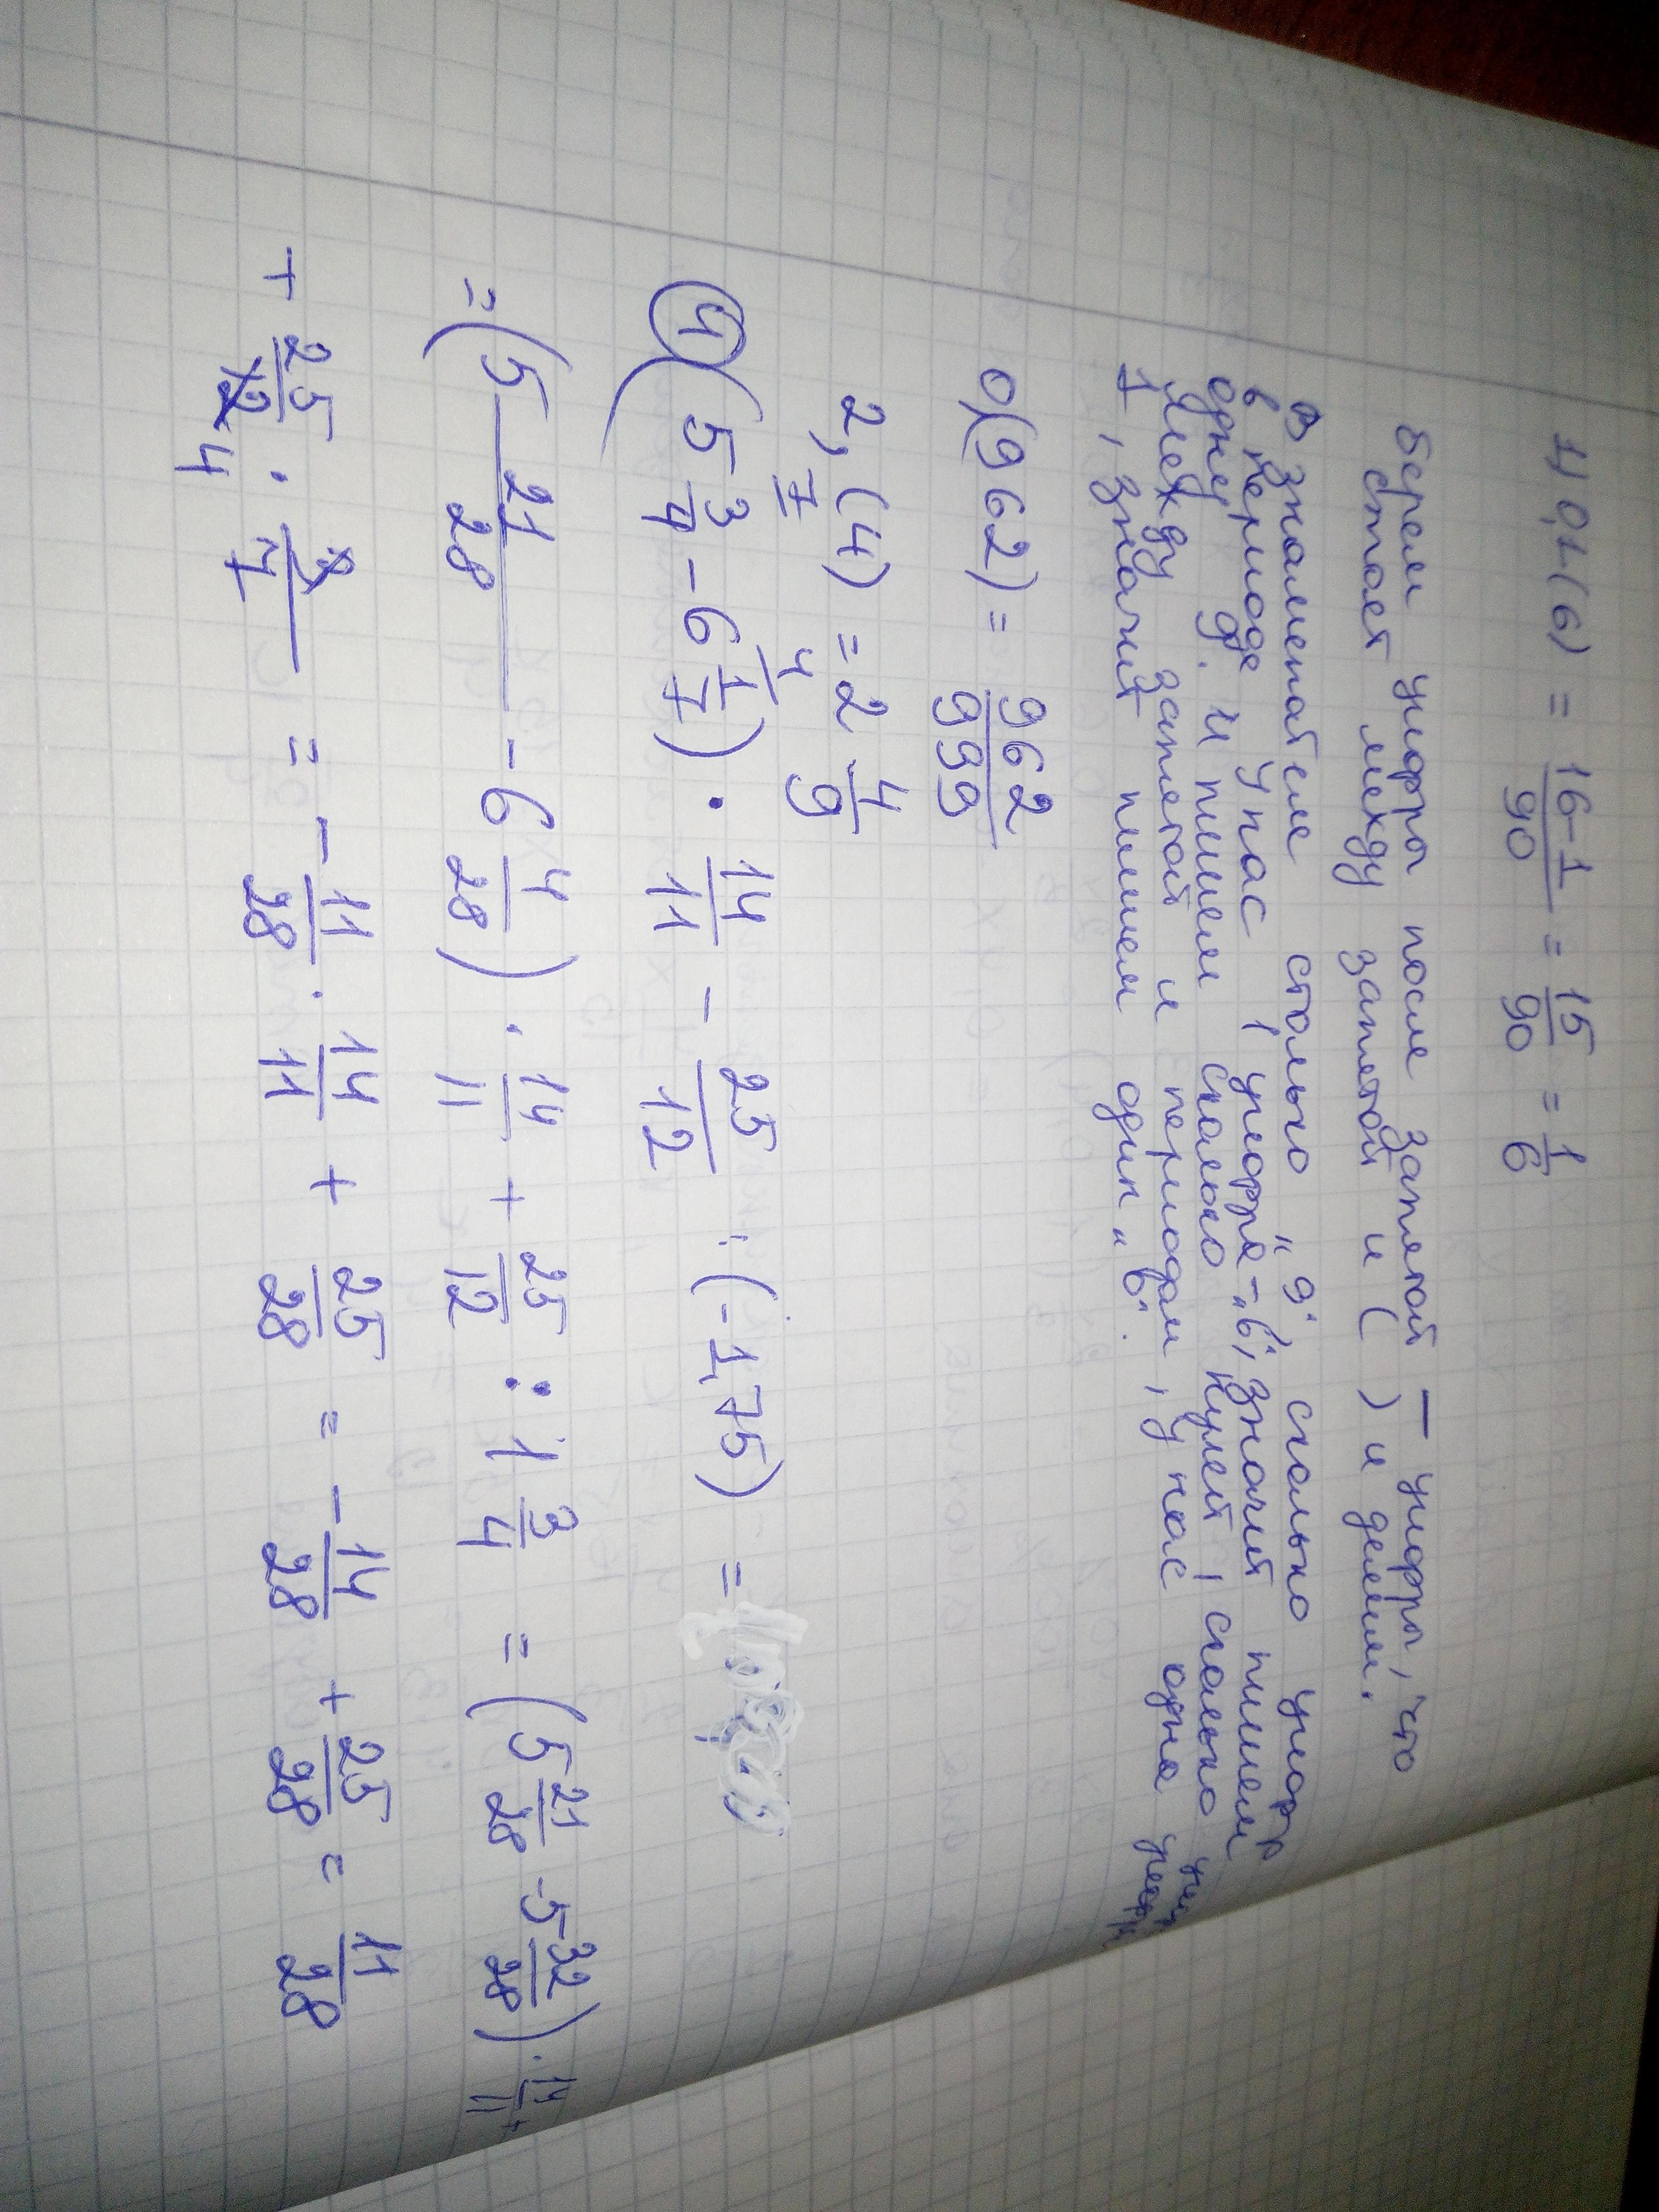 1) 0,1(6) = 16-1/90 = 15/90 = 1/6
берем цифры после запятой — цифры, что
стоят между запятой и ( ) и делим.
В знаменателе столько "9", сколько цифр
в периоде. У нас 1 цифра - "6", значит пишем
одну 9. И пишем сколько нулей, сколько
между запятой и периодом, у нас одна цифра
1, значит пишем один "0".
0(962) = 962/999
2,(4) = 2 4/9
4) (5 3/4 - 6 1/7) · 14/11 - 25/12 : (-1,75) =
= (5 21/28 - 6 4/28) · 14/11 + 25/12 : 1 3/4 = (5 21/28 - 5 32/28) · 14/11 +
+ 25/12 4 · 4/7 = - 11/28 · 14/11 + 25/28 = - 14/28 + 25/28 = 11/28